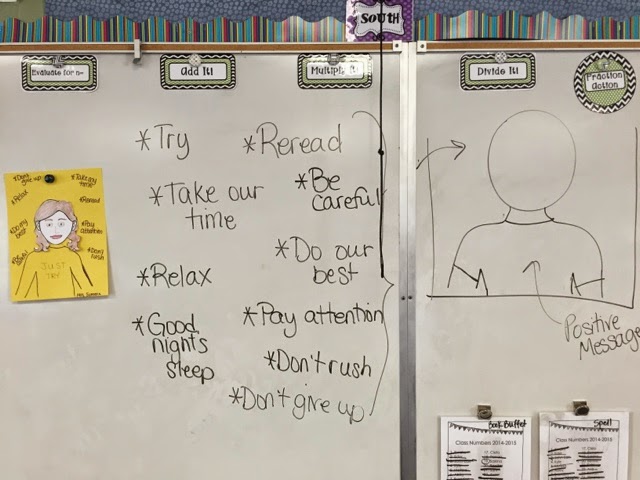 SOUTH
Evaluate for n=
Add It!
Multiply It!
Divide It!
Fraction
Action
*Try
*Take our
time
*Relax
*Good
nights
sleep
*Reread
*Be
careful
*Do our
best
*Pay attention
*Don't rush
*Don't give up
Positive
Message
*Don't
give up
*Take my
time
*Relax
*Reread
*Do my
best
*Pay
attention
*Don't
rush
JUST
TRY
Book Buffet
Class Numbers 2014-2015
Spell
Class Numbers 2014-2015